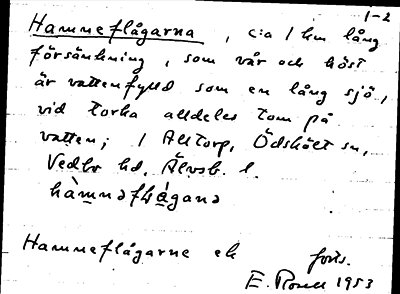 1-2
Hamneflågarna, c:a 1 km lång
försänkning, som vår och höst
är vattenfylld som en lång sjö,
vid torka alldeles tom på
vatten; i Alltorp, Ödskölt sn,
Vedbo hd, Älvsb. l.
Hamneflågarne ek forts.
E. Rosell 1953